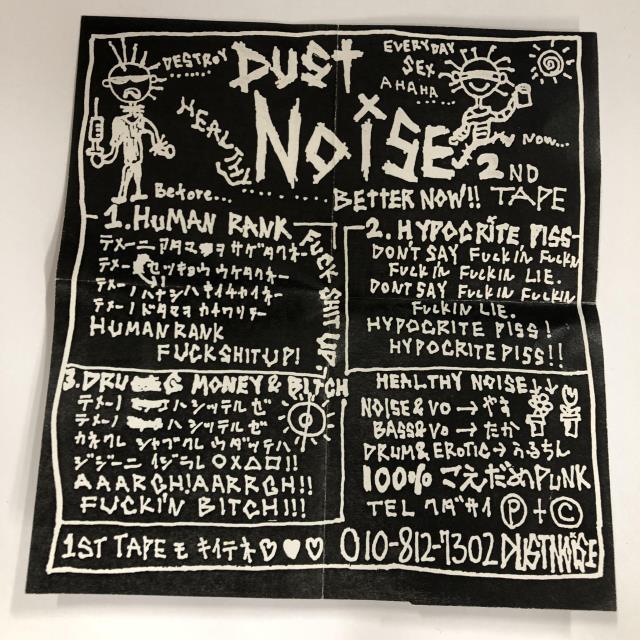 DESTROY
........
DUST
NOISE
EVERYDAY
SEX
AHAHA
.......
HEALTHY
NOW...
2ND
TAPE
Before...
BETTER NOW!!
1. HUMAN RANK
テメーニ アタマヲ サゲタクネー
テメーノ
テメーノ ハナシハ キイチャイネー
テメーノ
HUMAN RANK
FUCKSHITUP!
FUCK SHIT UP.
2. HYPOCRITE PISS
DON'T SAY FUCKIN FUCKIN
FUCKIN FUCKIN LIE.
DON'T SAY FUCKIN FUCKIN
FUCKIN LIE.
HYPOCRITE PISS!
HYPOCRITE PISS!!
3. DRUG MONEY & BITCH
テメーノ ハ シッテルゼ
テメーノ ハ シッテルゼ
カネクレ シャブクレ ウダッテハ
ジジーニ イジラレ OX△□!!
AAARGH!AARRGH!!
FUCKI'N BITCH!!!
HEALTHY NOISE↓↓
NOISE&VO → やす
BASS&VO → たか
DRUM & EROTIC → ふるちん
100% こえだめPUNK
TEL クダサイ Ⓟ+Ⓒ
1ST TAPE モ キイテネ♡♥♡
010-812-7302 DUSTNOISE